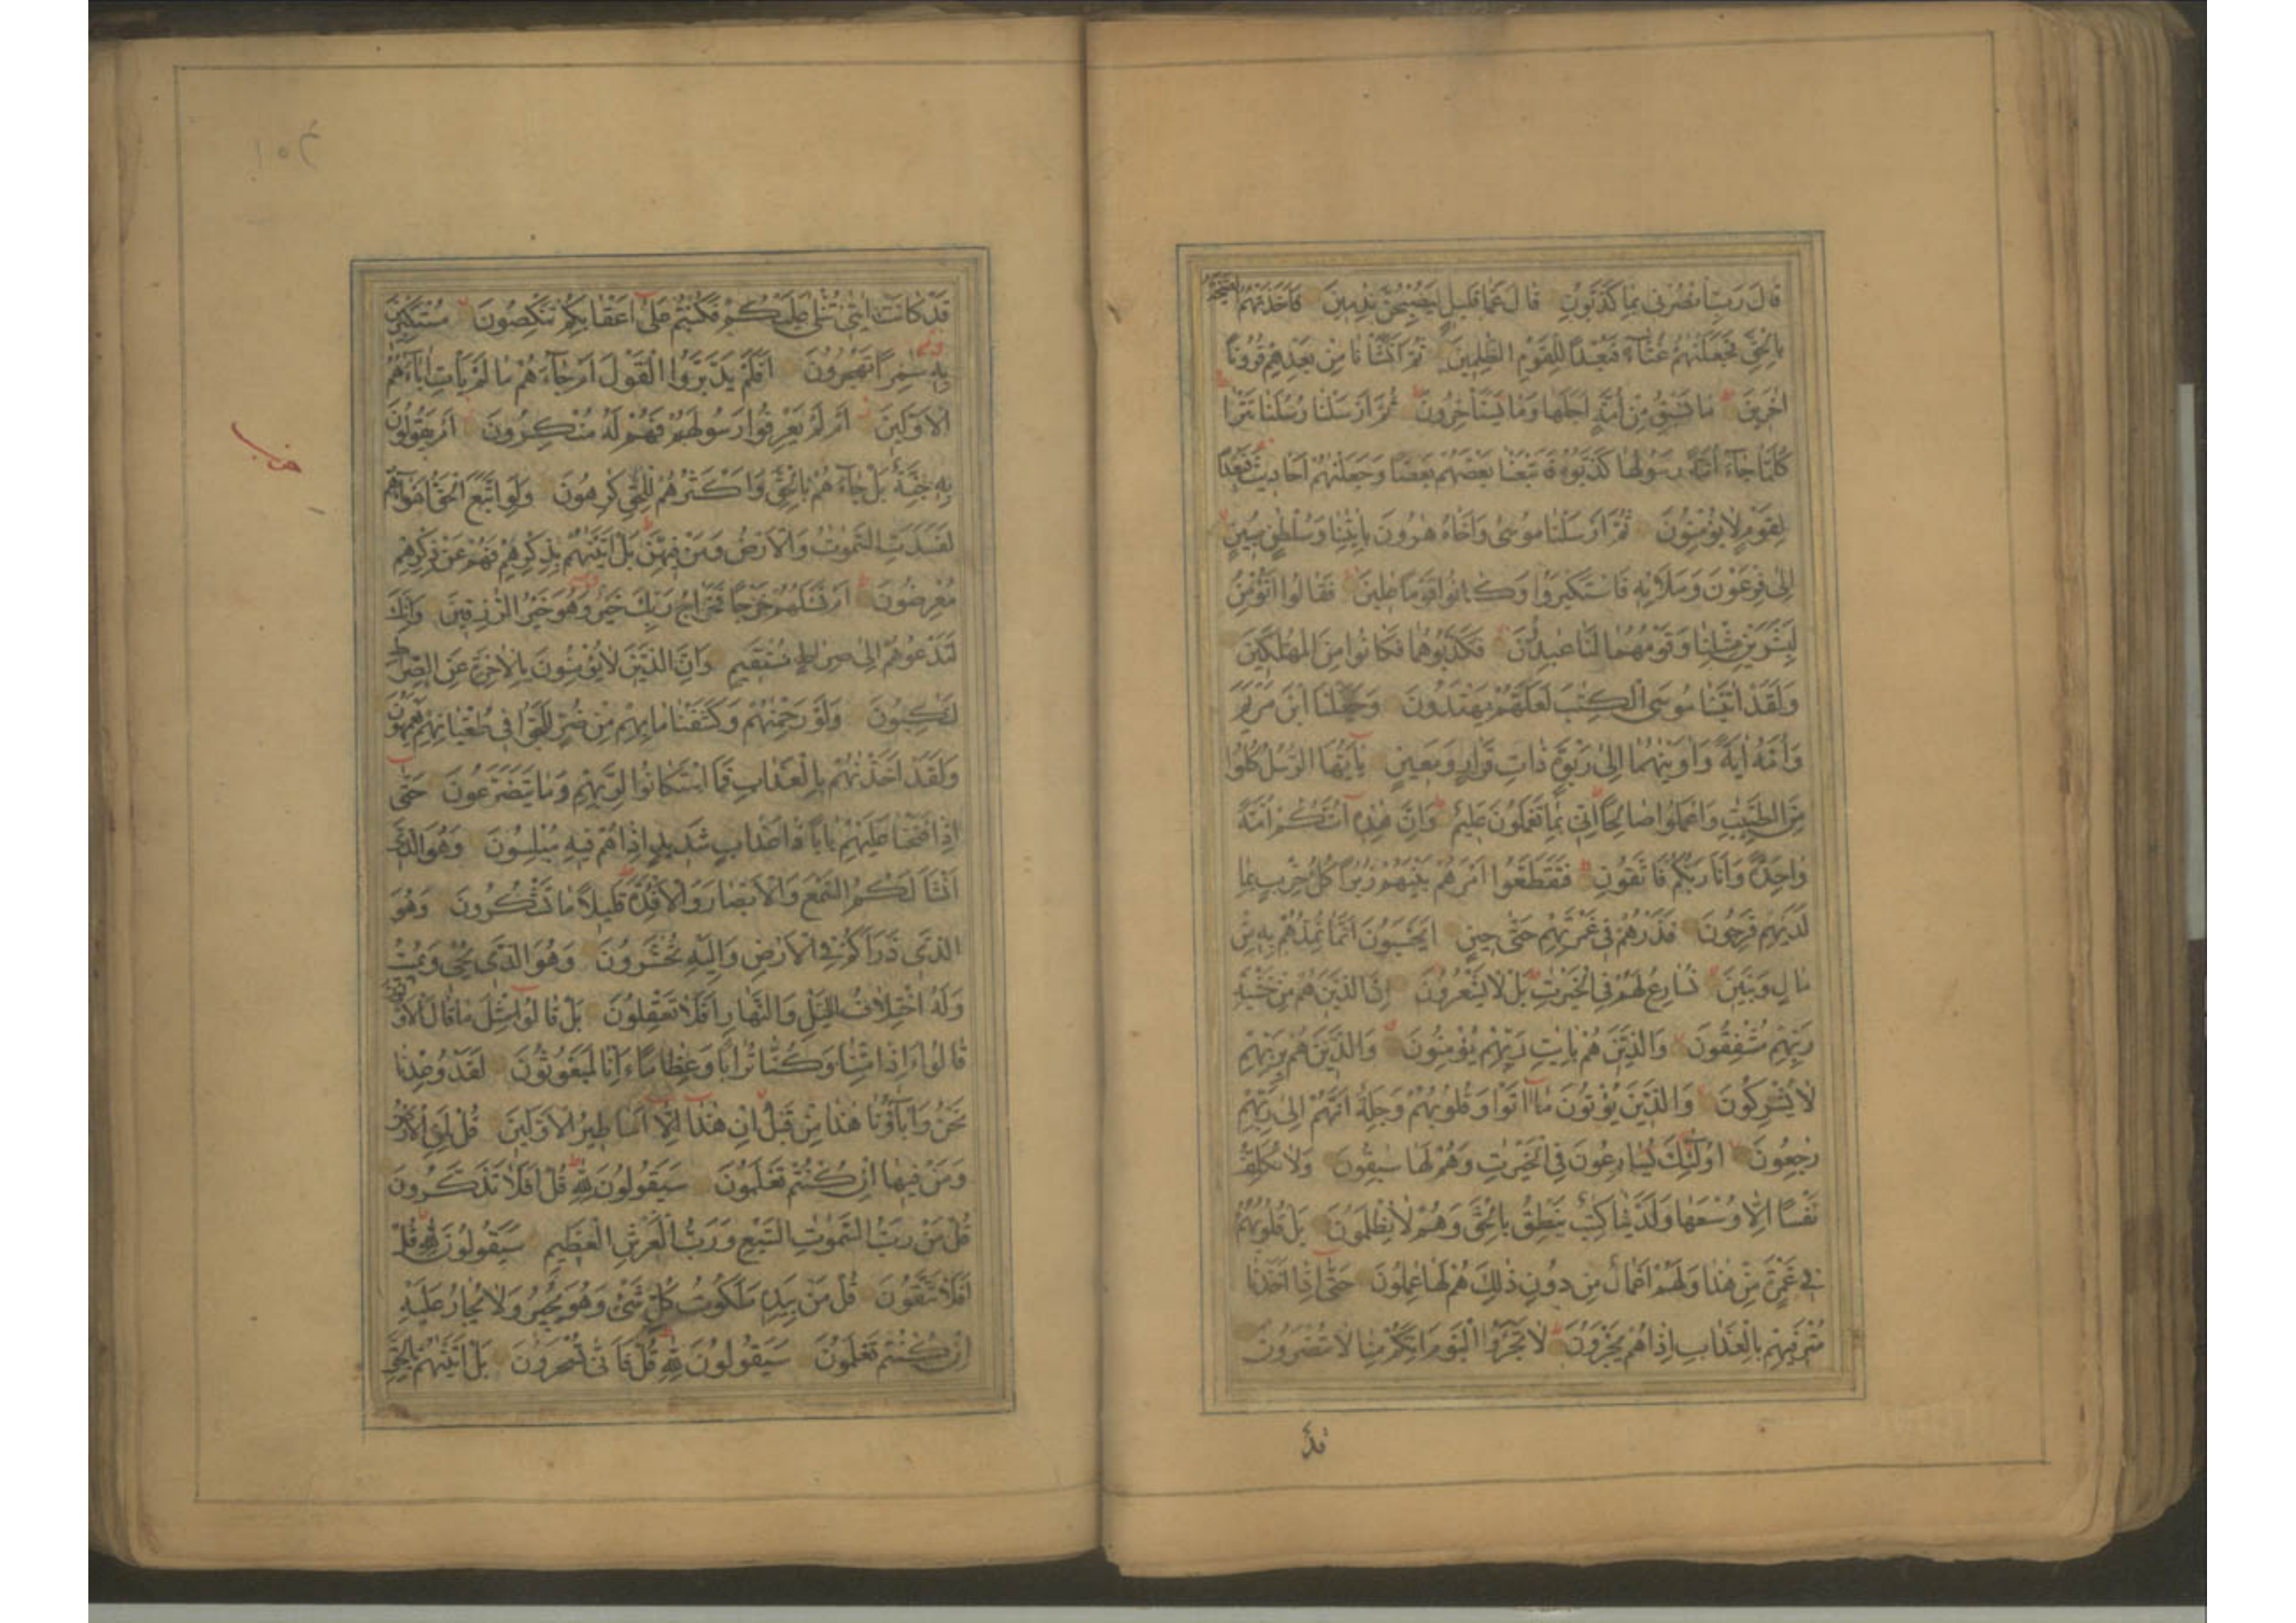 قَالَ رَبِّ انْصُرْنِي بِمَا كَذَّبُونِ قَالَ عَمَّا قَلِيلٍ لَيُصْبِحُنَّ نَادِمِينَ فَأَخَذَتْهُمُ الصَّيْحَةُ
بِالْحَقِّ فَجَعَلْنٰهُمْ غُثَآءً فَبُعْدًا لِلْقَوْمِ الظّٰلِمِينَ ثُمَّ أَنْشَأْنَا مِنْ بَعْدِهِمْ قُرُونًا
اٰخَرِينَ مَا تَسْبِقُ مِنْ أُمَّةٍ أَجَلَهَا وَمَا يَسْتَأْخِرُونَ ثُمَّ أَرْسَلْنَا رُسُلَنَا تَتْرَا
كُلَّمَا جَآءَ أُمَّةً رَسُولُهَا كَذَّبُوهُ فَأَتْبَعْنَا بَعْضَهُمْ بَعْضًا وَجَعَلْنٰهُمْ أَحَادِيثَ فَبُعْدًا
لِقَوْمٍ لَا يُؤْمِنُونَ ثُمَّ أَرْسَلْنَا مُوسٰى وَأَخَاهُ هٰرُونَ بِاٰيٰتِنَا وَسُلْطٰنٍ مُبِينٍ
إِلٰى فِرْعَوْنَ وَمَلَائِهِ فَاسْتَكْبَرُوا وَكَانُوا قَوْمًا عَالِينَ فَقَالُوا أَنُؤْمِنُ
لِبَشَرَيْنِ مِثْلِنَا وَقَوْمُهُمَا لَنَا عٰبِدُونَ فَكَذَّبُوهُمَا فَكَانُوا مِنَ الْمُهْلَكِينَ
وَلَقَدْ اٰتَيْنَا مُوسَى الْكِتٰبَ لَعَلَّهُمْ يَهْتَدُونَ وَجَعَلْنَا ابْنَ مَرْيَمَ
وَأُمَّهُ اٰيَةً وَاٰوَيْنٰهُمَا إِلٰى رَبْوَةٍ ذَاتِ قَرَارٍ وَمَعِينٍ يٰأَيُّهَا الرُّسُلُ كُلُوا
مِنَ الطَّيِّبٰتِ وَاعْمَلُوا صَالِحًا إِنِّي بِمَا تَعْمَلُونَ عَلِيمٌ وَإِنَّ هٰذِهِ أُمَّتُكُمْ أُمَّةً
وَاحِدَةً وَأَنَا رَبُّكُمْ فَاتَّقُونِ فَتَقَطَّعُوا أَمْرَهُمْ بَيْنَهُمْ زُبُرًا كُلُّ حِزْبٍ بِمَا
لَدَيْهِمْ فَرِحُونَ فَذَرْهُمْ فِي غَمْرَتِهِمْ حَتّٰى حِينٍ أَيَحْسَبُونَ أَنَّمَا نُمِدُّهُمْ بِهِ مِنْ
مَالٍ وَبَنِينَ نُسَارِعُ لَهُمْ فِي الْخَيْرٰتِ بَلْ لَا يَشْعُرُونَ إِنَّ الَّذِينَ هُمْ مِنْ خَشْيَةِ
رَبِّهِمْ مُشْفِقُونَ وَالَّذِينَ هُمْ بِاٰيٰتِ رَبِّهِمْ يُؤْمِنُونَ وَالَّذِينَ هُمْ بِرَبِّهِمْ
لَا يُشْرِكُونَ وَالَّذِينَ يُؤْتُونَ مَا اٰتَوْا وَقُلُوبُهُمْ وَجِلَةٌ أَنَّهُمْ إِلٰى رَبِّهِمْ
رٰجِعُونَ أُولٰئِكَ يُسَارِعُونَ فِي الْخَيْرٰتِ وَهُمْ لَهَا سٰبِقُونَ وَلَا نُكَلِّفُ
نَفْسًا إِلَّا وُسْعَهَا وَلَدَيْنَا كِتٰبٌ يَنْطِقُ بِالْحَقِّ وَهُمْ لَا يُظْلَمُونَ بَلْ قُلُوبُهُمْ
فِي غَمْرَةٍ مِنْ هٰذَا وَلَهُمْ أَعْمَالٌ مِنْ دُونِ ذٰلِكَ هُمْ لَهَا عٰمِلُونَ حَتّٰى إِذَا أَخَذْنَا
مُتْرَفِيهِمْ بِالْعَذَابِ إِذَا هُمْ يَجْئَرُونَ لَا تَجْئَرُوا الْيَوْمَ إِنَّكُمْ مِنَّا لَا تُنْصَرُونَ
قَدْ
قَدْ كَانَتْ اٰيٰتِي تُتْلٰى عَلَيْكُمْ فَكُنْتُمْ عَلٰى أَعْقَابِكُمْ تَنْكِصُونَ مُسْتَكْبِرِينَ
بِهِ سٰمِرًا تَهْجُرُونَ أَفَلَمْ يَدَّبَّرُوا الْقَوْلَ أَمْ جَآءَهُمْ مَا لَمْ يَأْتِ اٰبَآءَهُمُ
الْأَوَّلِينَ أَمْ لَمْ يَعْرِفُوا رَسُولَهُمْ فَهُمْ لَهُ مُنْكِرُونَ أَمْ يَقُولُونَ
بِهِ جِنَّةٌ بَلْ جَآءَهُمْ بِالْحَقِّ وَأَكْثَرُهُمْ لِلْحَقِّ كٰرِهُونَ وَلَوِ اتَّبَعَ الْحَقُّ أَهْوَآءَهُمْ
لَفَسَدَتِ السَّمٰوٰتُ وَالْأَرْضُ وَمَنْ فِيهِنَّ بَلْ أَتَيْنٰهُمْ بِذِكْرِهِمْ فَهُمْ عَنْ ذِكْرِهِمْ
مُعْرِضُونَ أَمْ تَسْئَلُهُمْ خَرْجًا فَخَرَاجُ رَبِّكَ خَيْرٌ وَهُوَ خَيْرُ الرّٰزِقِينَ وَإِنَّكَ
لَتَدْعُوهُمْ إِلٰى صِرَاطٍ مُسْتَقِيمٍ وَإِنَّ الَّذِينَ لَا يُؤْمِنُونَ بِالْاٰخِرَةِ عَنِ الصِّرَاطِ
لَنٰكِبُونَ وَلَوْ رَحِمْنٰهُمْ وَكَشَفْنَا مَا بِهِمْ مِنْ ضُرٍّ لَلَجُّوا فِي طُغْيَانِهِمْ يَعْمَهُونَ
وَلَقَدْ أَخَذْنٰهُمْ بِالْعَذَابِ فَمَا اسْتَكَانُوا لِرَبِّهِمْ وَمَا يَتَضَرَّعُونَ حَتّٰى
إِذَا فَتَحْنَا عَلَيْهِمْ بَابًا ذَا عَذَابٍ شَدِيدٍ إِذَا هُمْ فِيهِ مُبْلِسُونَ وَهُوَ الَّذِي
أَنْشَأَ لَكُمُ السَّمْعَ وَالْأَبْصَارَ وَالْأَفْئِدَةَ قَلِيلًا مَا تَشْكُرُونَ وَهُوَ
الَّذِي ذَرَأَكُمْ فِي الْأَرْضِ وَإِلَيْهِ تُحْشَرُونَ وَهُوَ الَّذِي يُحْيِي وَيُمِيتُ
وَلَهُ اخْتِلَافُ الَّيْلِ وَالنَّهَارِ أَفَلَا تَعْقِلُونَ بَلْ قَالُوا مِثْلَ مَا قَالَ الْأَوَّلُونَ
قَالُوا ءَإِذَا مِتْنَا وَكُنَّا تُرَابًا وَعِظَامًا ءَإِنَّا لَمَبْعُوثُونَ لَقَدْ وُعِدْنَا
نَحْنُ وَاٰبَآؤُنَا هٰذَا مِنْ قَبْلُ إِنْ هٰذَا إِلَّا أَسَاطِيرُ الْأَوَّلِينَ قُلْ لِمَنِ الْأَرْضُ
وَمَنْ فِيهَا إِنْ كُنْتُمْ تَعْلَمُونَ سَيَقُولُونَ لِلّٰهِ قُلْ أَفَلَا تَذَكَّرُونَ
قُلْ مَنْ رَبُّ السَّمٰوٰتِ السَّبْعِ وَرَبُّ الْعَرْشِ الْعَظِيمِ سَيَقُولُونَ لِلّٰهِ قُلْ
أَفَلَا تَتَّقُونَ قُلْ مَنْ بِيَدِهِ مَلَكُوتُ كُلِّ شَيْءٍ وَهُوَ يُجِيرُ وَلَا يُجَارُ عَلَيْهِ
إِنْ كُنْتُمْ تَعْلَمُونَ سَيَقُولُونَ لِلّٰهِ قُلْ فَأَنّٰى تُسْحَرُونَ بَلْ أَتَيْنٰهُمْ بِالْحَقِّ